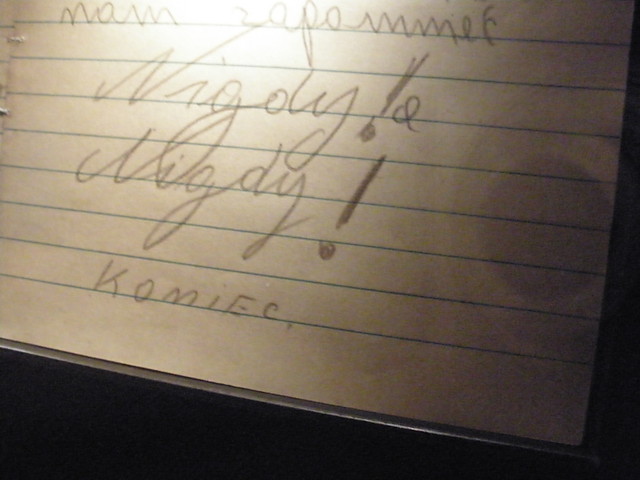 nam zapomnieć
Nigdy! a
Nigdy!
KONIEC.